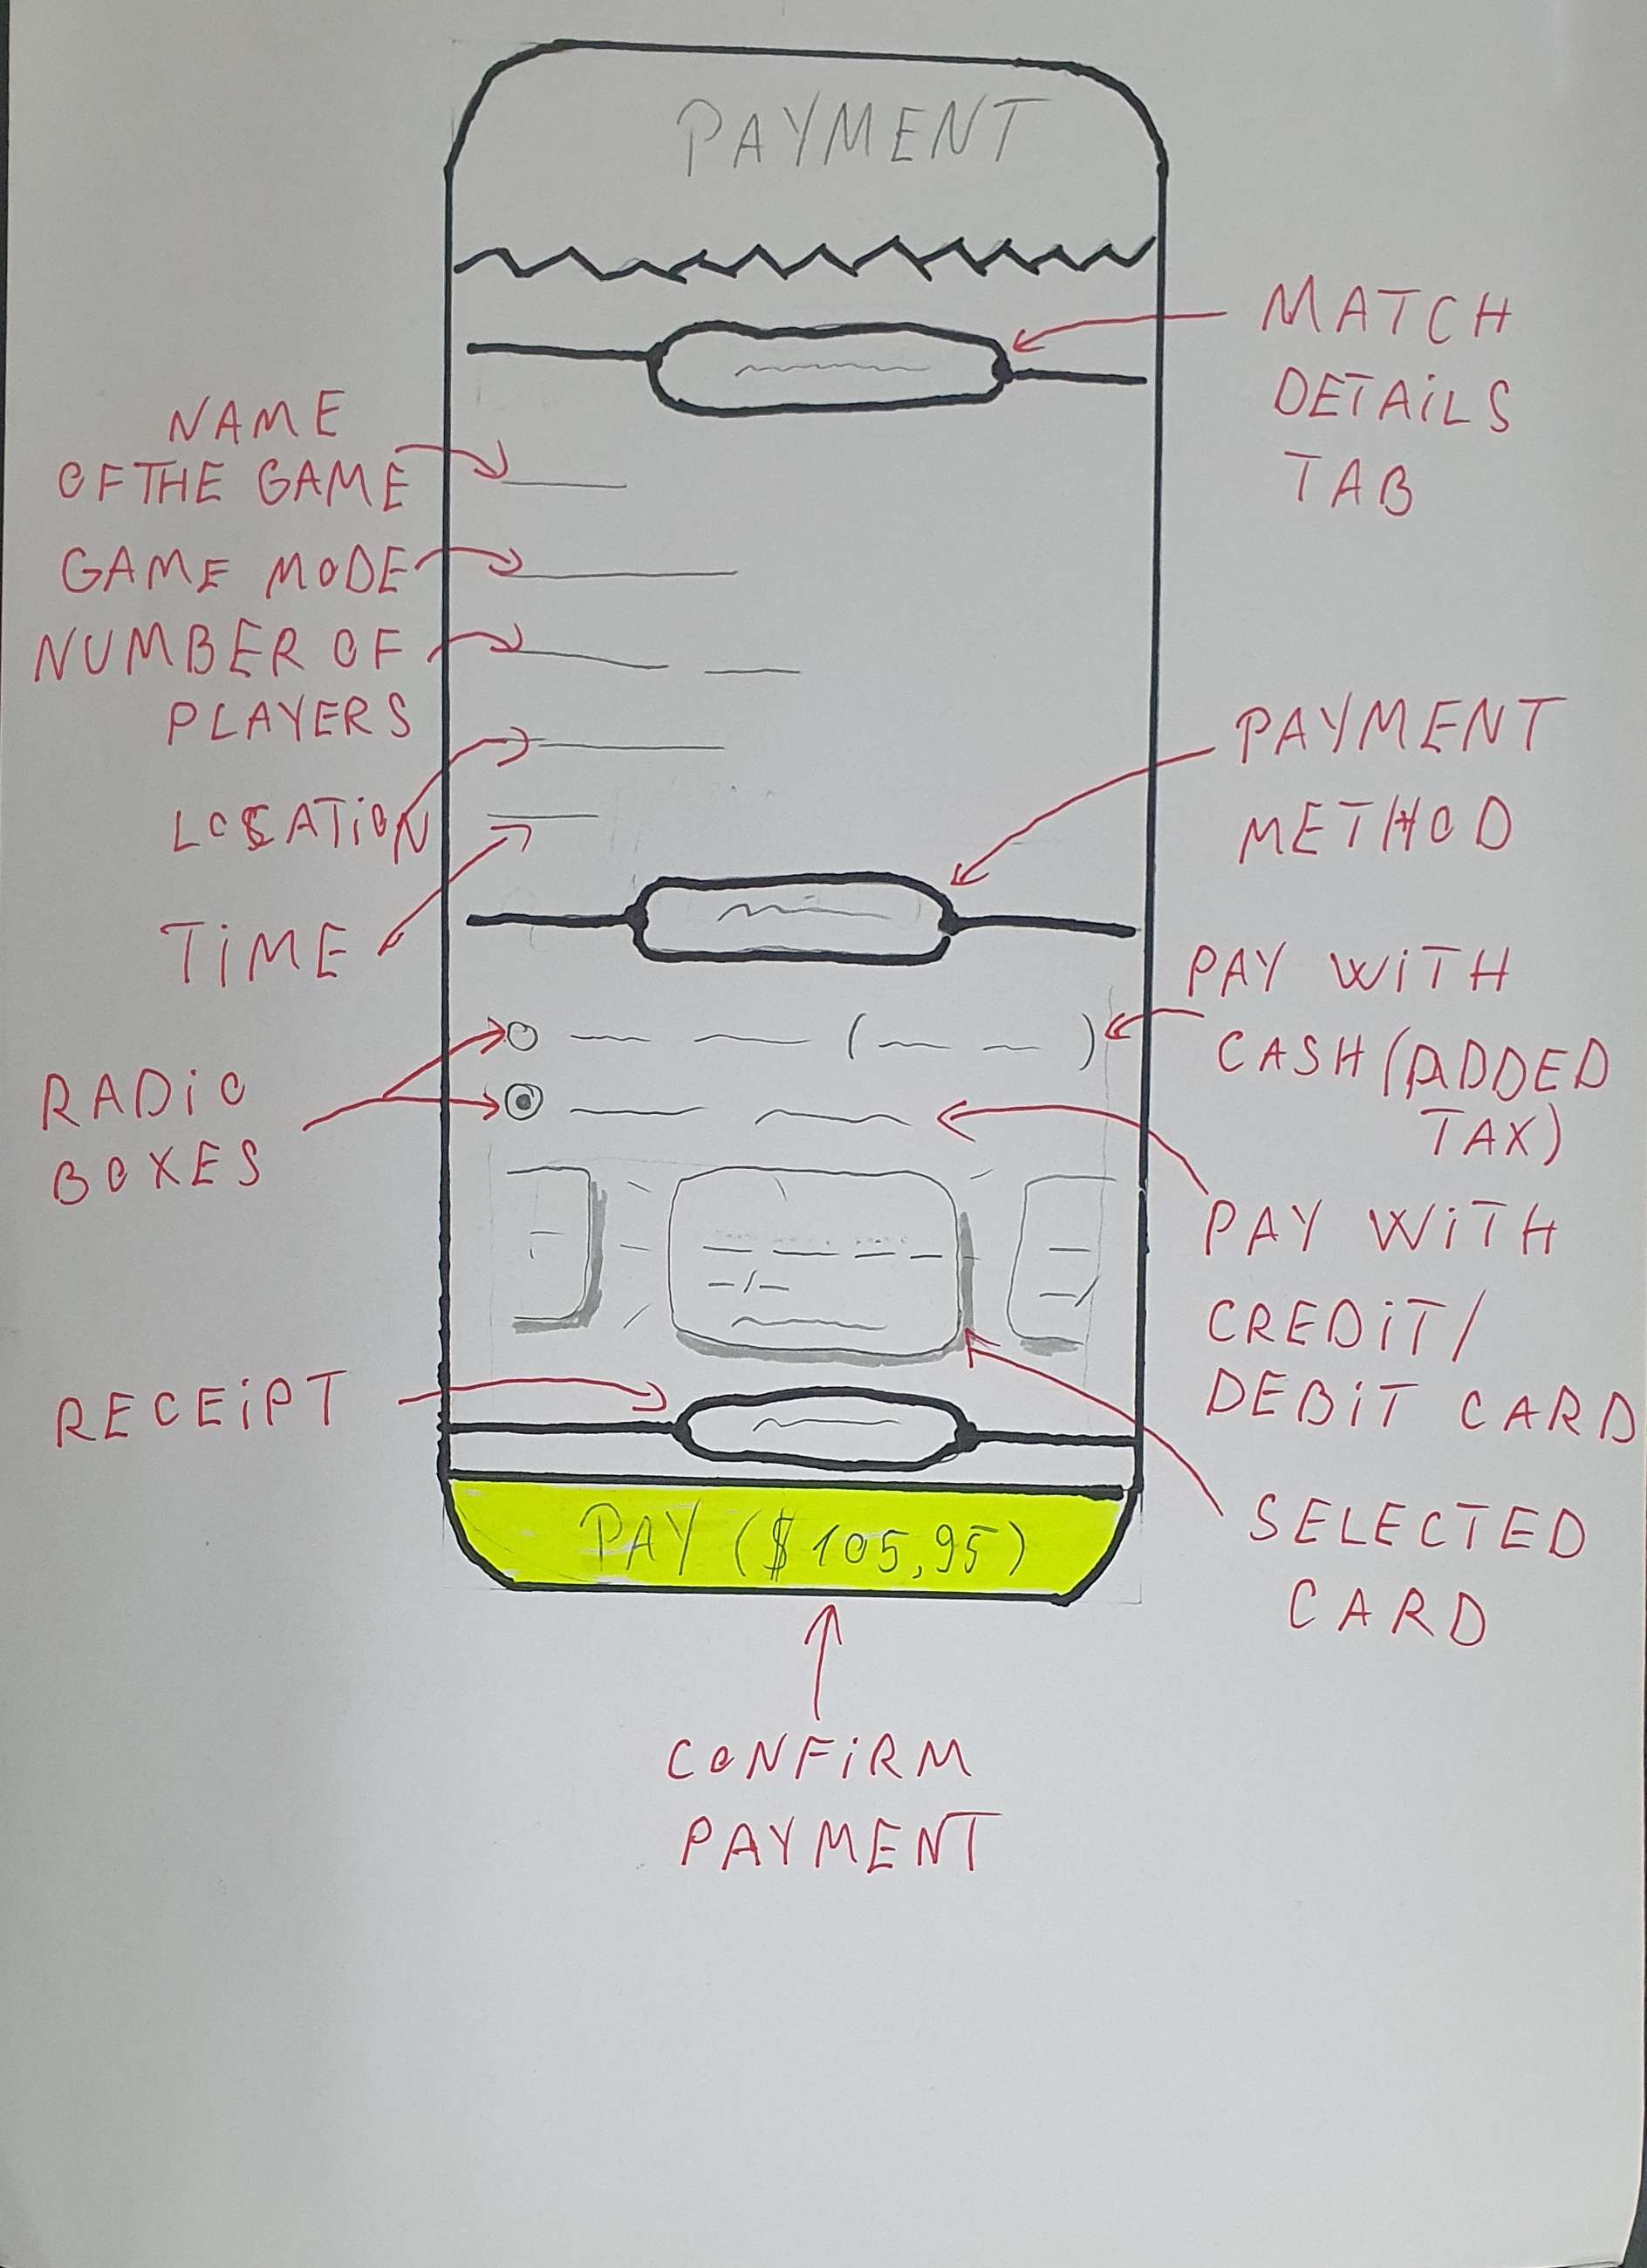 PAYMENT
MATCH
DETAiLS
TAB
NAME
OF THE GAME
GAME MODE
NUMBER OF
PLAYERS
LOCATiON
TiME
PAYMENT
METHOD
PAY WiTH
CASH (ADDED
TAX)
RADiO
BOXES
PAY WiTH
CREDiT/
DEBiT CARD
RECEiPT
SELECTED
CARD
PAY ($105,95)
CONFiRM
PAYMENT